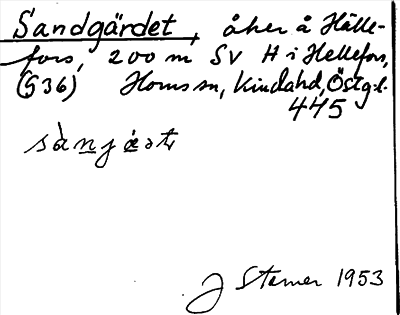 Sandgärdet, åker å Hälle-
fors, 200 m SV H i Hellefors,
(G36) Horns sn, Kinda hd, Östg. l.
445
sànjæ̀ət
J Sterner 1953